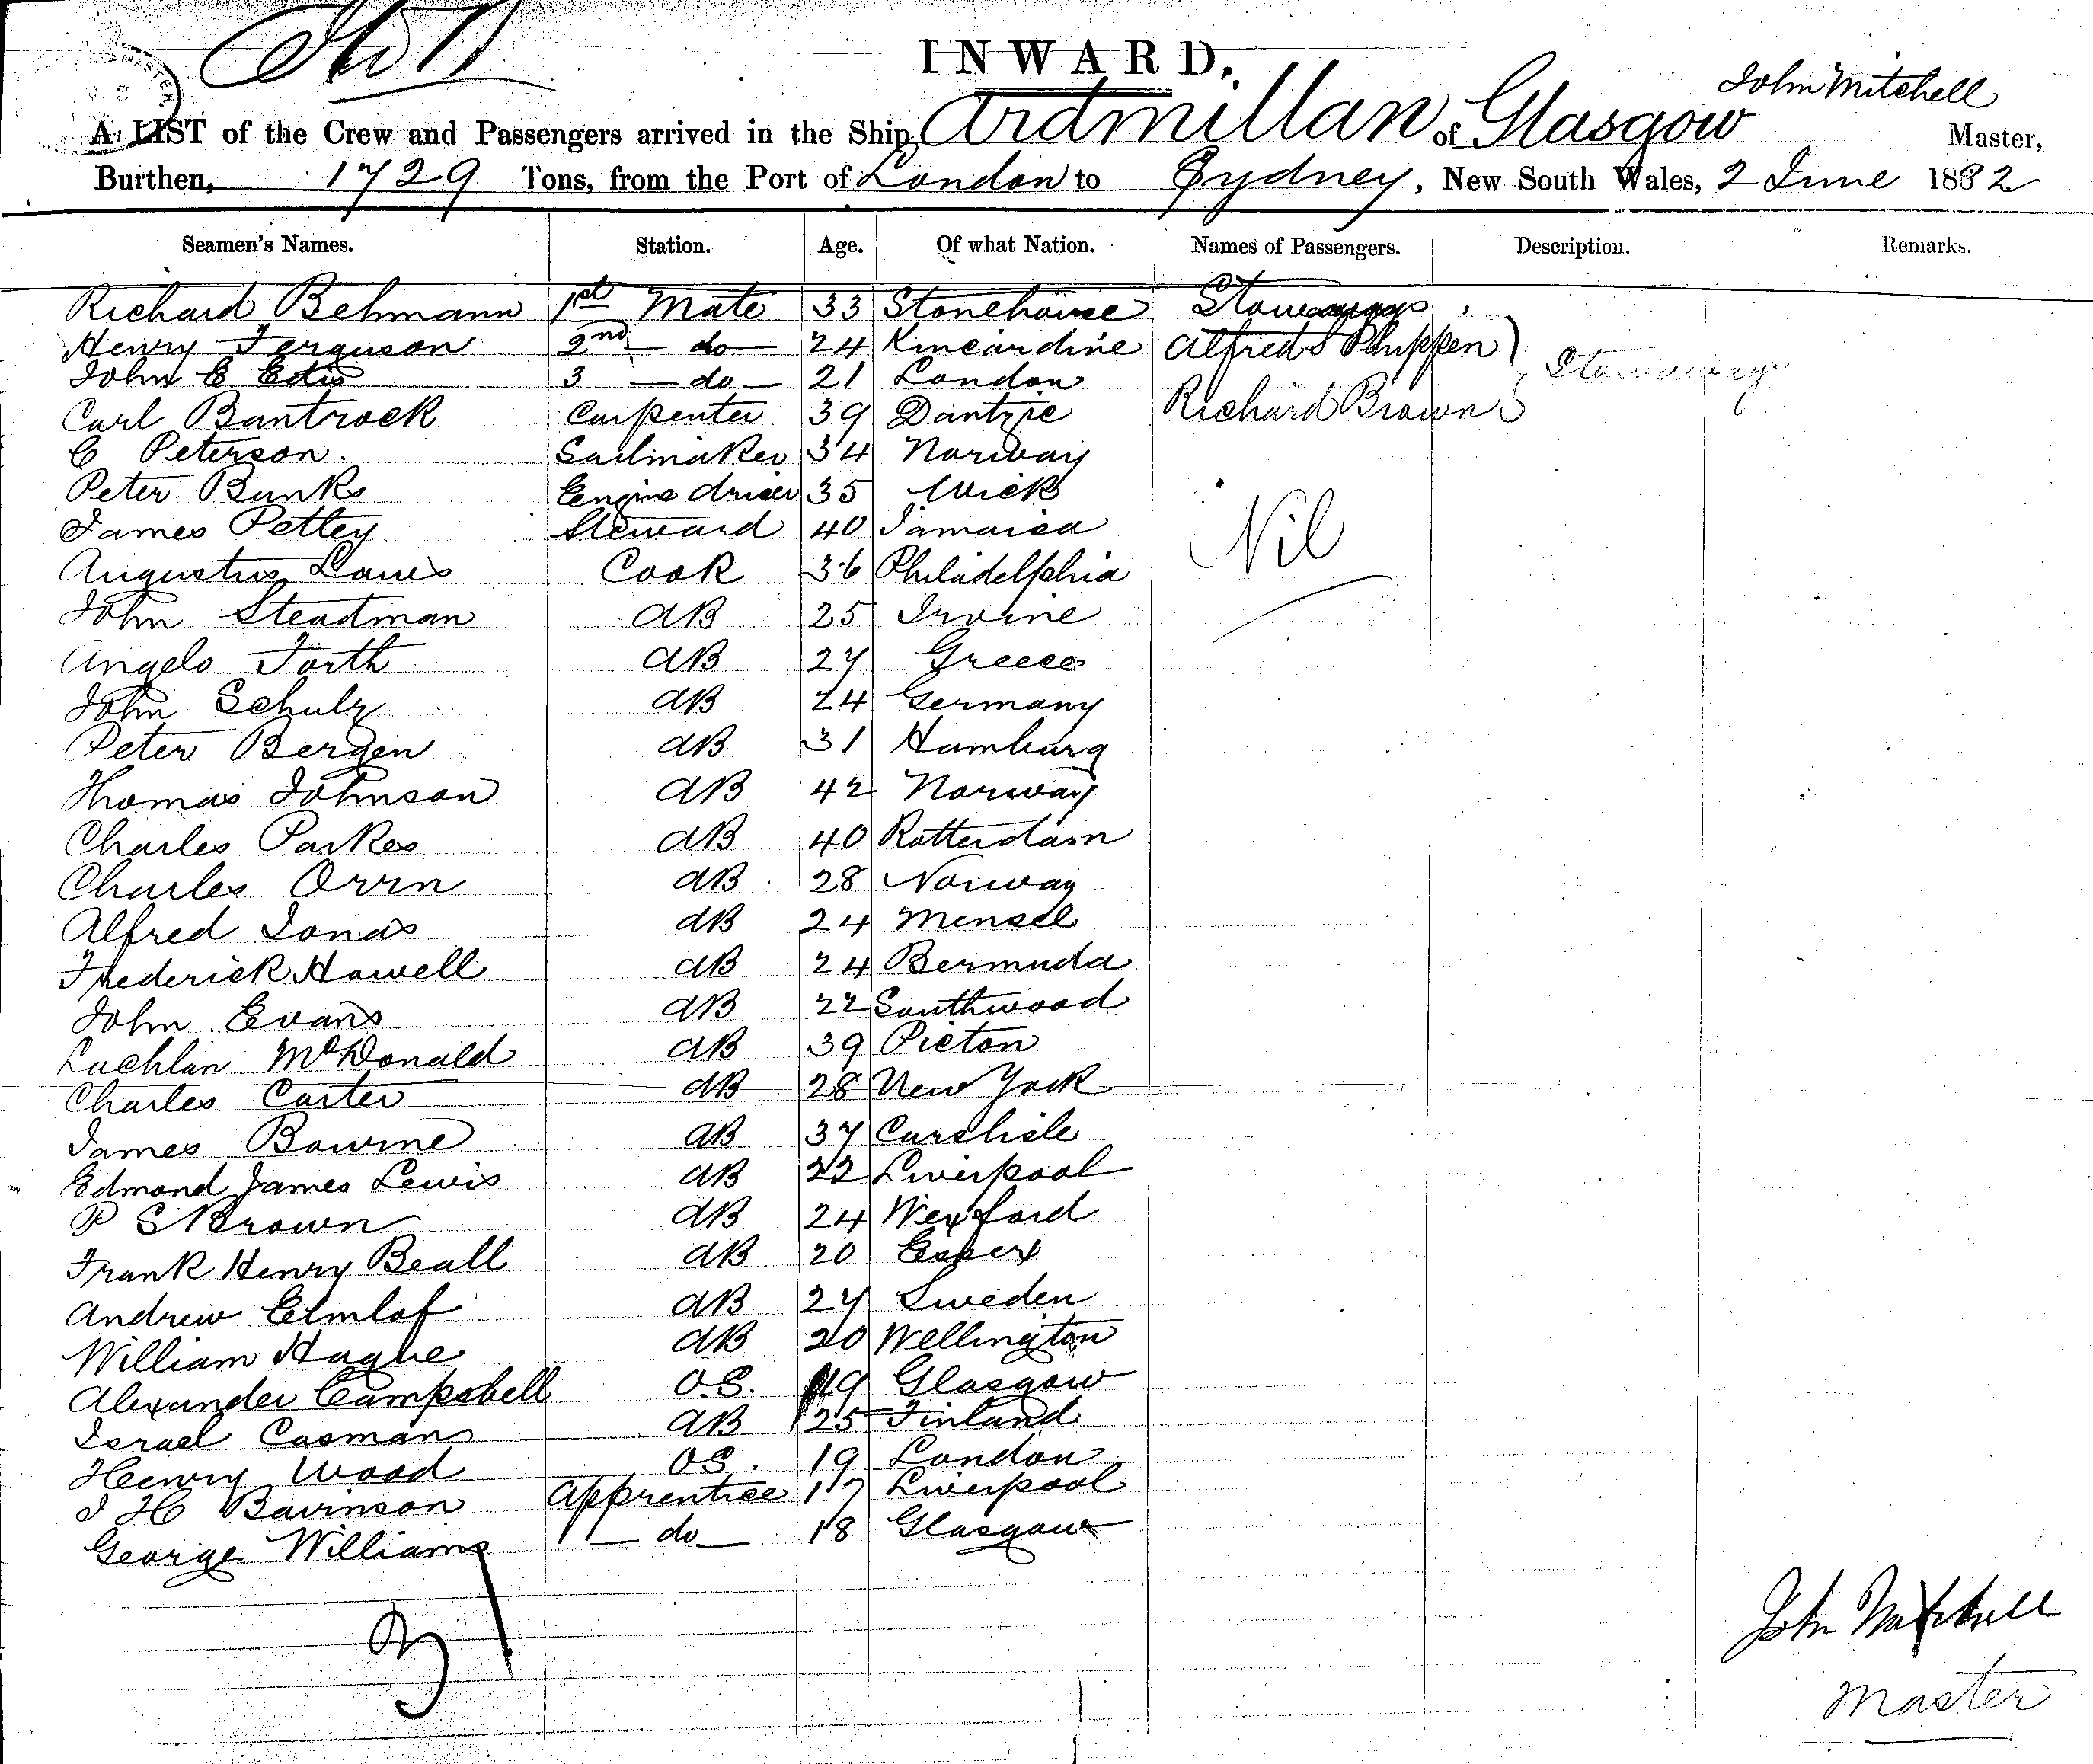 INWARD.
John Mitchell
A LIST of the Crew and Passengers arrived in the Ship Ardmillan of Glasgow Master,
Burthen, 1729 Tons, from the Port of London to Sydney, New South Wales, 2 June 1882
Seamen's Names. Station. Age. Of what Nation. Names of Passengers. Description. Remarks.
Richard Behmann 1st Mate 33 Stonehouse Stowaways
Henry Ferguson 2nd do 24 Kincardine Alfred S Phippen
John E Edis 3 do 21 London Stowaways
Carl Buntrock Carpenter 39 Dantzic Richard Brown
C Peterson. Sailmaker 34 Norway
Peter Bunks Eengine driver 35 Wick
James Pettey Steward 40 Jamaica Nil
Augustus Cook 36 Philadelphia
John Steadman AB 25 Irvine
Angelo Forth AB 27 Greece
John Schulz AB 24 Germany
Peter Bergen AB 31 Hamburg
Thomas Johnson AB 42 Norway
Charles Parkes AB 40 Rotterdam
Charles Orrn AB 28 Norway
Alfred Jonas AB 24 Mensel
Frederick Howell AB 24 Bermuda
John Evans AB 22 Southwood
Lachlan McDonald AB 39 Picton
Charles Carter AB 28 New York
James Bowrne AB 37 Carslisle
Edmond James Lewis AB 22 Liverpool
P S Brown AB 24 Wexford
Frank Henry Beall AB 20 Essex
Andrew Elmlof AB 27 Sweden
William Hague AB 20 Wellington
Alexander Campsbell O.S. 19 Glasgow
Israel Casman AB 25 Finland
Henry Wood OS. 19 London
J H Bavinson Apprentice 17 Liverpool
George Williams do 18 Glasgow
John Mitchell
Master